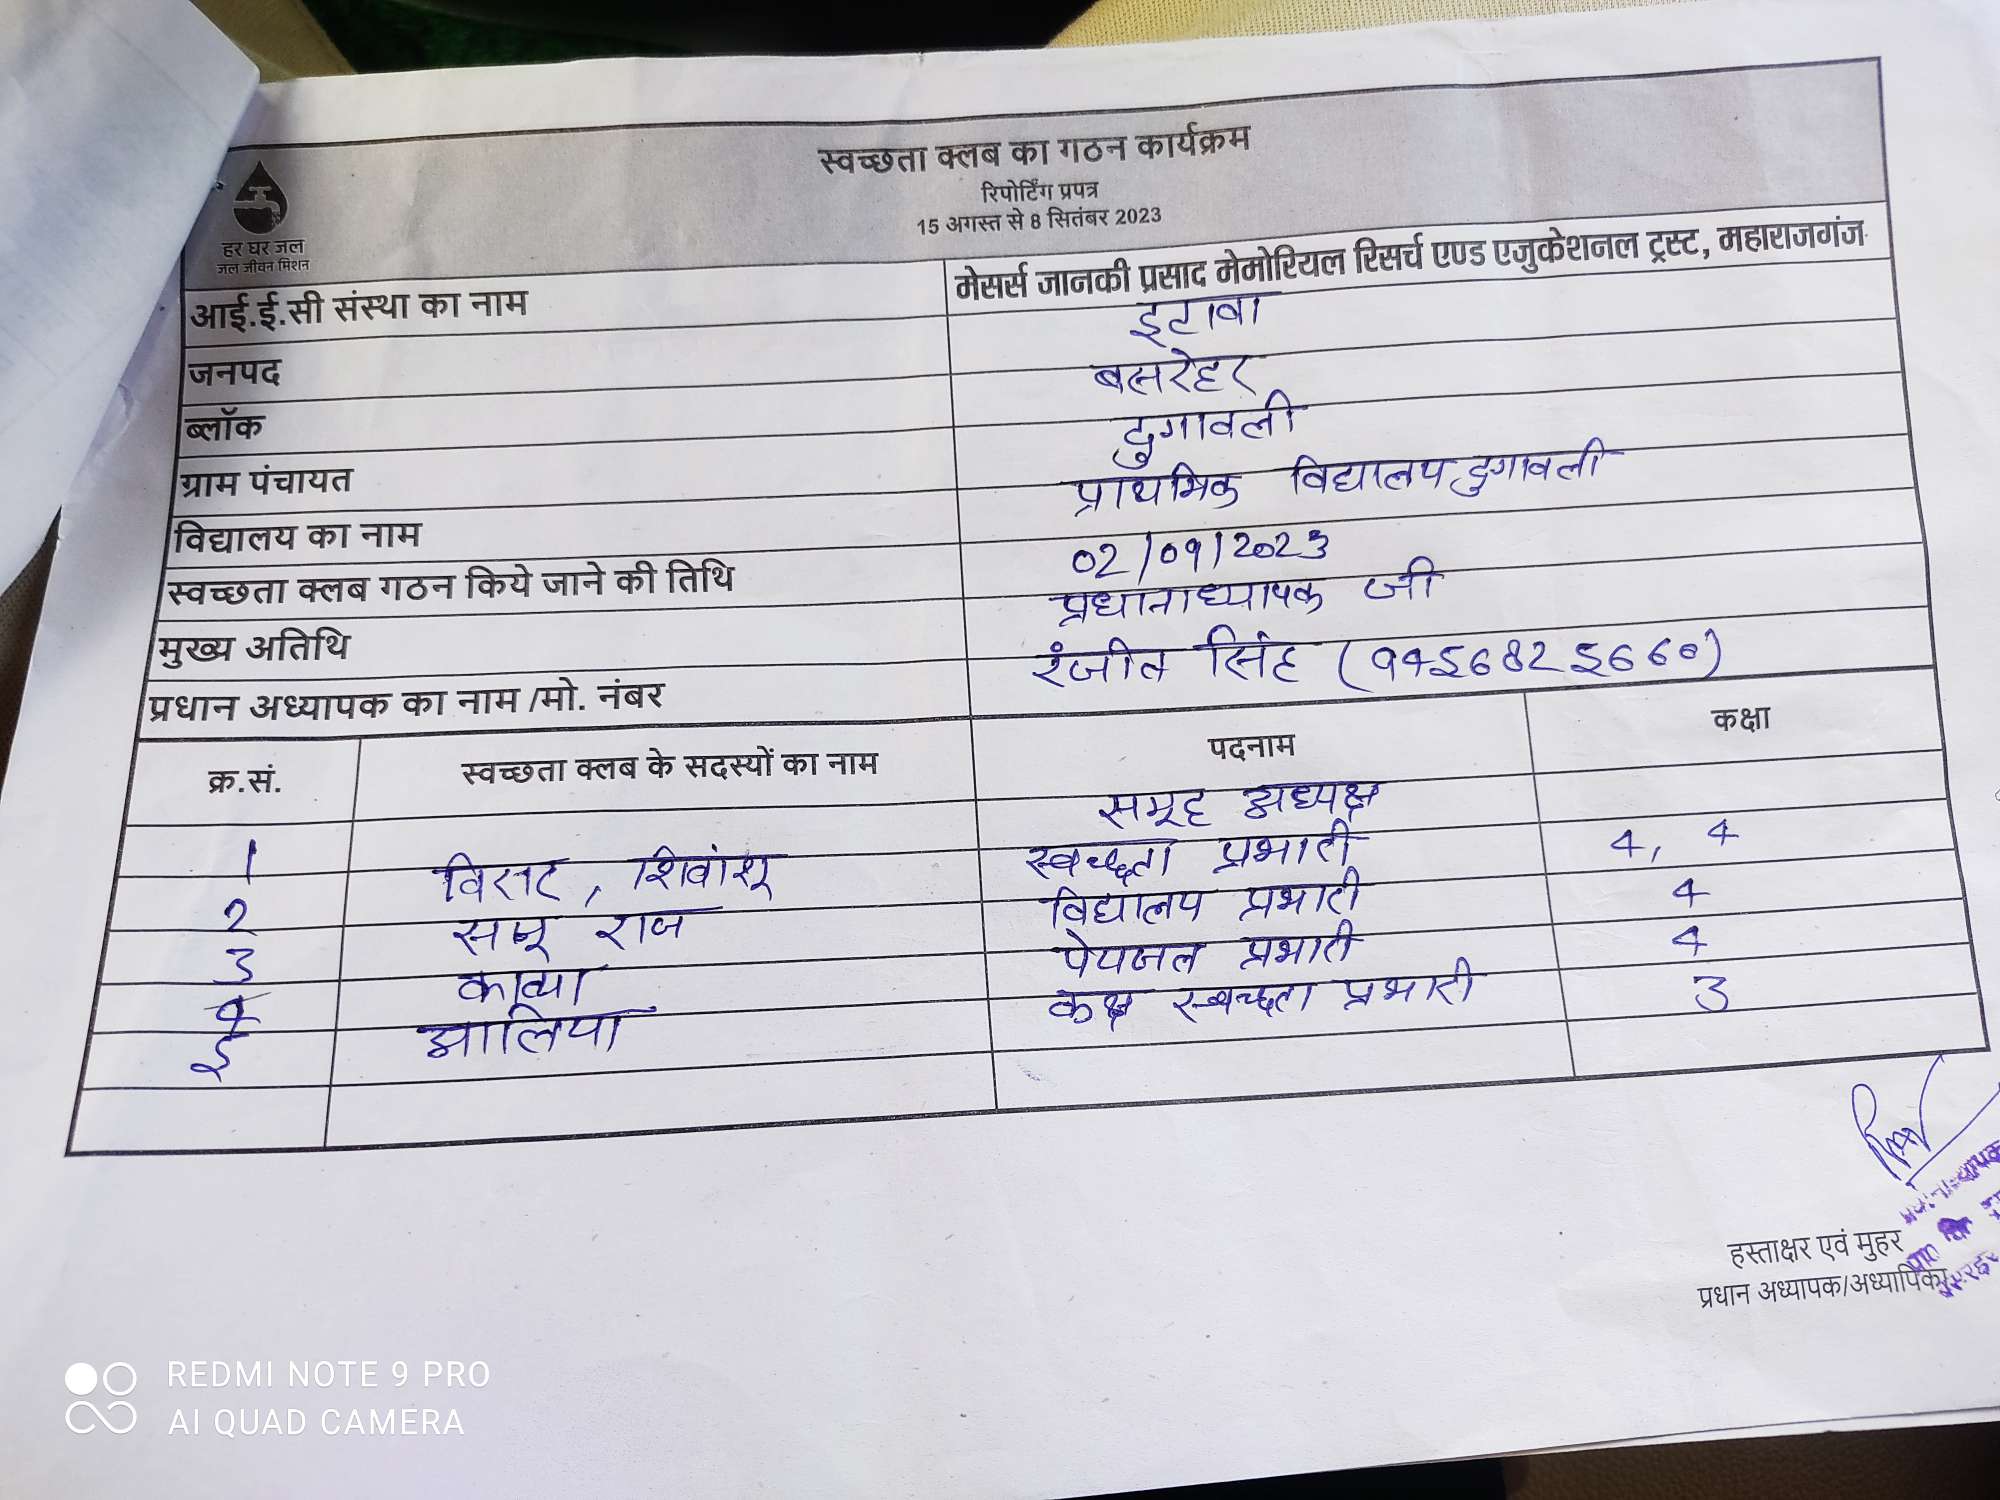 स्वच्छता क्लब का गठन कार्यक्रम
रिपोर्टिंग प्रपत्र
15 अगस्त से 8 सितंबर 2023
हर घर जल
जल जीवन मिशन
आई.ई.सी संस्था का नाम मेसर्स जानकी प्रसाद मेमोरियल रिसर्च एण्ड एजुकेशनल ट्रस्ट, महाराजगंज
जनपद इटावा
ब्लॉक बसरेहर
ग्राम पंचायत दुगावली
विद्यालय का नाम प्राथमिक विद्यालय दुगावली
स्वच्छता क्लब गठन किये जाने की तिथि 02/09/2023
मुख्य अतिथि प्रधानाध्यापक जी
प्रधान अध्यापक का नाम /मो. नंबर रंजीत सिंह
क्र.सं. स्वच्छता क्लब के सदस्यों का नाम पदनाम कक्षा
समूह अध्यक्ष
1 विराट, शिवांशू स्वच्छता प्रभारी 4, 4
2 राज विद्यालय प्रभारी 4
3 काव्या पेयजल प्रभारी 4
4 आलिया कक्ष स्वच्छता प्रभारी 3
5
हस्ताक्षर एवं मुहर
प्रधान अध्यापक/अध्यापिका
REDMI NOTE 9 PRO
AI QUAD CAMERA